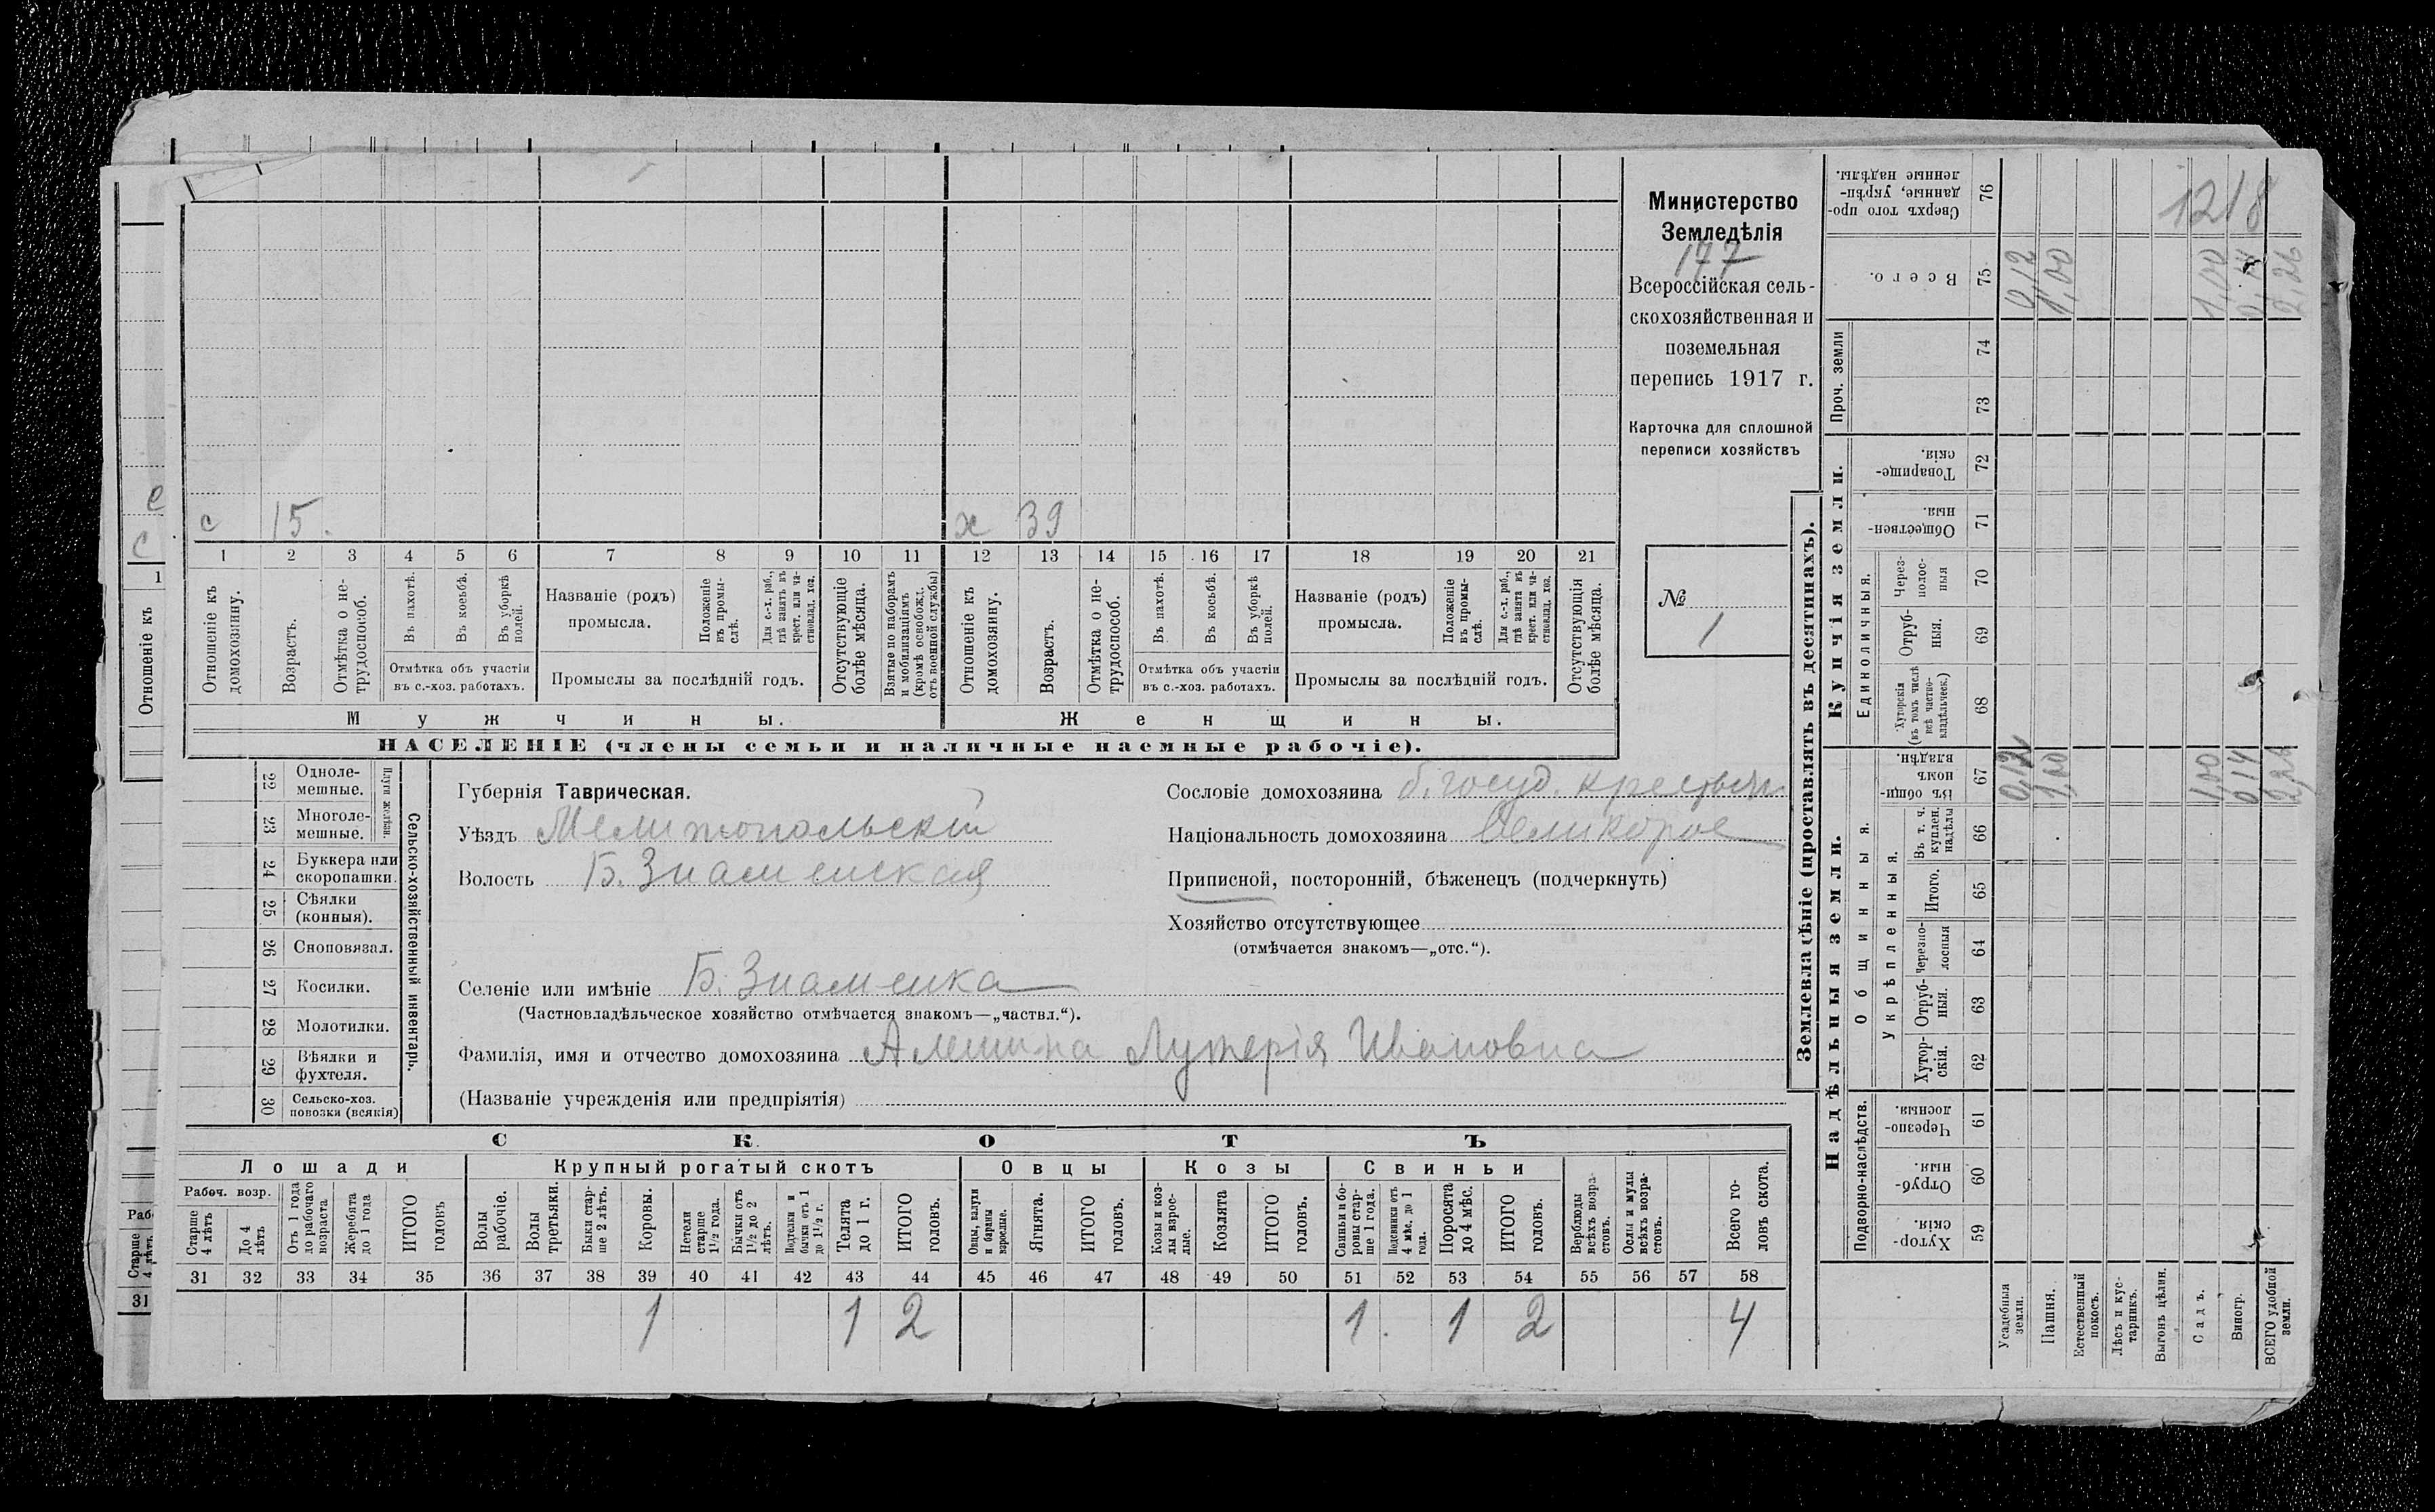 Министерство
Земледѣлія
177
Всероссійская сель-
скохозяйственная и
поземельная
перепись 1917 г.
Карточка для сплошной
переписи хозяйствъ
№
1
с 15. х 39
1 2 3 4 5 6 7 8 9 10 11 12 13 14 15 16 17 18 19 20 21
Отношеніе къ домохозяину.
Возрастъ.
Отмѣтка о не-трудоспособ.
Въ пахотѣ.
Въ косьбѣ.
Въ уборкѣ полей.
Отмѣтка объ участіи
въ с.-хоз. работахъ.
Названіе (родъ)
промысла.
Положеніе въ промы-слѣ.
Для с.-х. раб., гдѣ занятъ въ крест. или ча-стновлад. хоз.
Промыслы за послѣдній годъ.
Отсутствующіе болѣе мѣсяца.
Взятые по наборамъ и мобилизаціямъ (кромѣ освобожд. отъ военной службы)
Отношеніе къ домохозяину.
Возрастъ.
Отмѣтка о не-трудоспособ.
Въ пахотѣ.
Въ косьбѣ.
Въ уборкѣ полей.
Отмѣтка объ участіи
въ с.-хоз. работахъ.
Названіе (родъ)
промысла.
Положеніе въ промы-слѣ.
Для с.-х. раб., гдѣ занята въ крест. или ча-стновлад. хоз.
Промыслы за послѣдній годъ.
Отсутствующія болѣе мѣсяца.
Мужчины. Женщины.
НАСЕЛЕНІЕ (члены семьи и наличные наемные рабочіе).
Сельско-хозяйственный инвентарь.
Плуги желѣзн.
22 Одноле-мешные.
23 Многоле-мешные.
24 Буккера или скоропашки.
25 Сѣялки (конныя).
26 Сноповязал.
27 Косилки.
28 Молотилки.
29 Вѣялки и фухтеля.
30 Сельско-хоз. повозки (всякія)
Губернія Таврическая.
Уѣздъ Мелитопольскій
Волость Б. Знаменская
Селеніе или имѣніе Б. Знаменка
(Частновладѣльческое хозяйство отмѣчается знакомъ—„частвл.“).
Фамилія, имя и отчество домохозяина Алешина Лукерія Ивановна
(Названіе учрежденія или предпріятія)
Сословіе домохозяина б. госуд. крестьян
Національность домохозяина Великорос
Приписной, посторонній, бѣженецъ (подчеркнуть)
Хозяйство отсутствующее
(отмѣчается знакомъ—„отс.“).
СКОТЪ
Лошади Крупный рогатый скотъ Овцы Козы Свиньи
Рабоч. возр.
Старше 4 лѣтъ
До 4 лѣтъ
Отъ 1 года до рабочаго возраста
Жеребята до 1 года
ИТОГО головъ
Волы рабочіе.
Волы третьяки.
Быки стар-ше 2 лѣтъ.
Коровы.
Нетели старше 1½ года.
Бычки отъ 1½ до 2 лѣтъ.
Подтелки и бычки отъ 1 до 1½ г.
Телята до 1 г.
ИТОГО головъ.
Овцы, валухи и бараны взрослые.
Ягнята.
ИТОГО головъ.
Козы и коз-лы взрос-лые.
Козлята
ИТОГО головъ.
Свиньи и бо-ровы стар-ше 1 года.
Подсвинки отъ 4 мѣс. до 1 года.
Поросята до 4 мѣс.
ИТОГО головъ.
Верблюды всѣхъ возра-стовъ.
Ослы и мулы всѣхъ возра-стовъ.
Всего го-ловъ скота.
31 32 33 34 35 36 37 38 39 40 41 42 43 44 45 46 47 48 49 50 51 52 53 54 55 56 57 58
1 1 2 1 1 2 4
Землевладѣніе (проставлять въ десятинахъ).
Надѣльныя земли. Купчія земли. Проч. земли
Подворно-наслѣдств.
Общинныя.
Укрѣпленныя.
Единоличныя.
Хутор-скія. 59
Отруб-ныя. 60
Черезпо-лосныя. 61
Хутор-скія. 62
Отруб-ныя. 63
Черезпо-лосныя 64
Итого. 65
Въ т. ч. куплен. надѣлы 66
Въ общи-номъ владѣн. 67
Хуторскія (въ томъ числѣ всѣ частно-владѣльческ.) 68
Отруб-ныя. 69
Через-полос-ныя 70
Обществен-ныя. 71
Товарище-скія. 72
73
74
Всего. 75
Сверхъ того про-данные, укрѣп-ленные надѣлы. 76
Усадебныя земли. 0,12 0,12
Пашня. 1,00 1,00
Естественный покосъ.
Лѣсъ и кус-тарникъ.
Выгонъ цѣлин.
Садъ. 1,00 1,00
Виногр. 0,14 0,14
ВСЕГО удобной земли. 2,26 2,26
1218
е
с
1
Отношеніе къ
Раб
Старше 4 лѣтъ
31